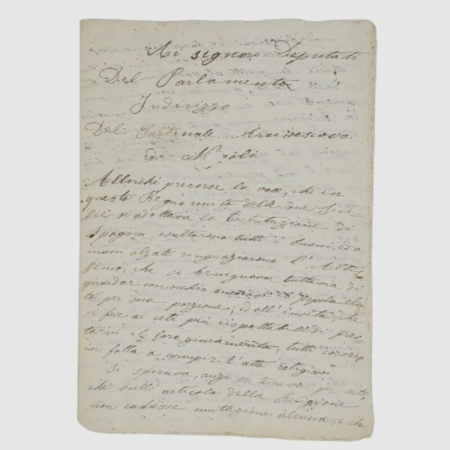 Ai signori Deputati
Del Parlamento
Indirizzo
Del Cardinale Arcivescovo
di Napoli
Allorchè precorse la voce, che in
questo Regno unito delle due Sici
lie si adottava la Costituzione di
Spagna, esultarono tutti i buoni, ed a
mani alzate ringraziarono l'Altis
simo, che si benignava tuttavia di
guardar con occhio il popolo elet
to per sua porzione; ed all'invito, che
si fece ai ceti più rispettabili di pres
tarvi il loro giuramento, tutti corsero
in folla a compir l'atto religioso
Si sperava, anzi si
che sull'articolo della Religione
non cadesse mutazione alcuna, e che